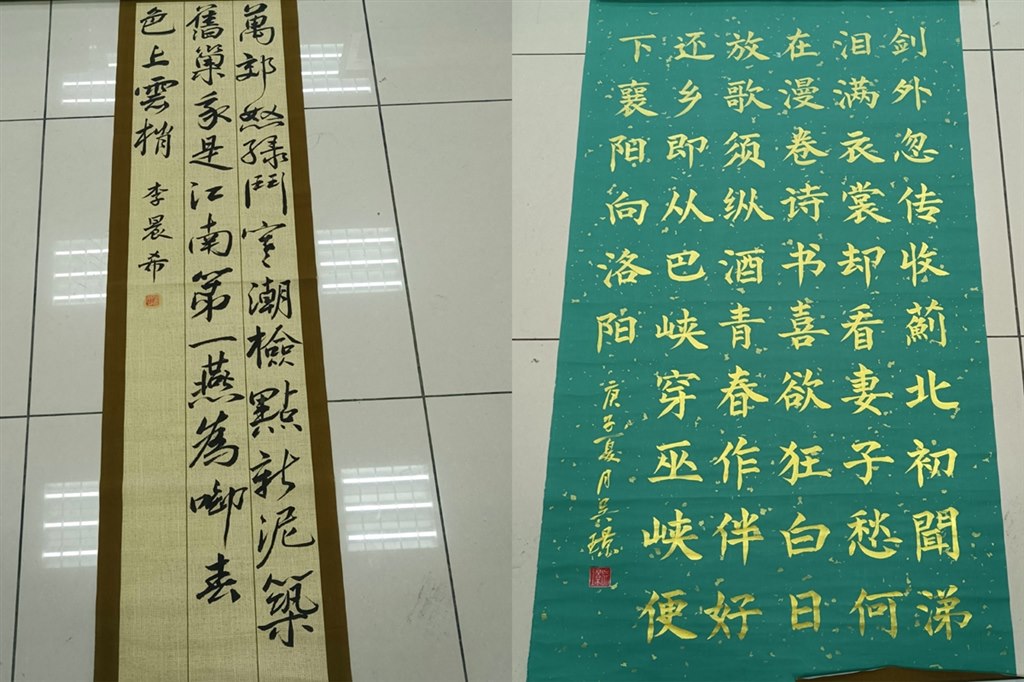 萬郊怒绿鬥寒潮檢點新泥築
舊巢我是江南第一燕為啣春
色上雲梢
李晨希
剑外忽传收薊北初聞涕
泪满衣裳却看妻子愁何
在漫卷诗书喜欲狂白日
放歌须纵酒青春作伴好
还乡即从巴峡穿巫峡便
下襄阳向洛阳
庚子夏月吴